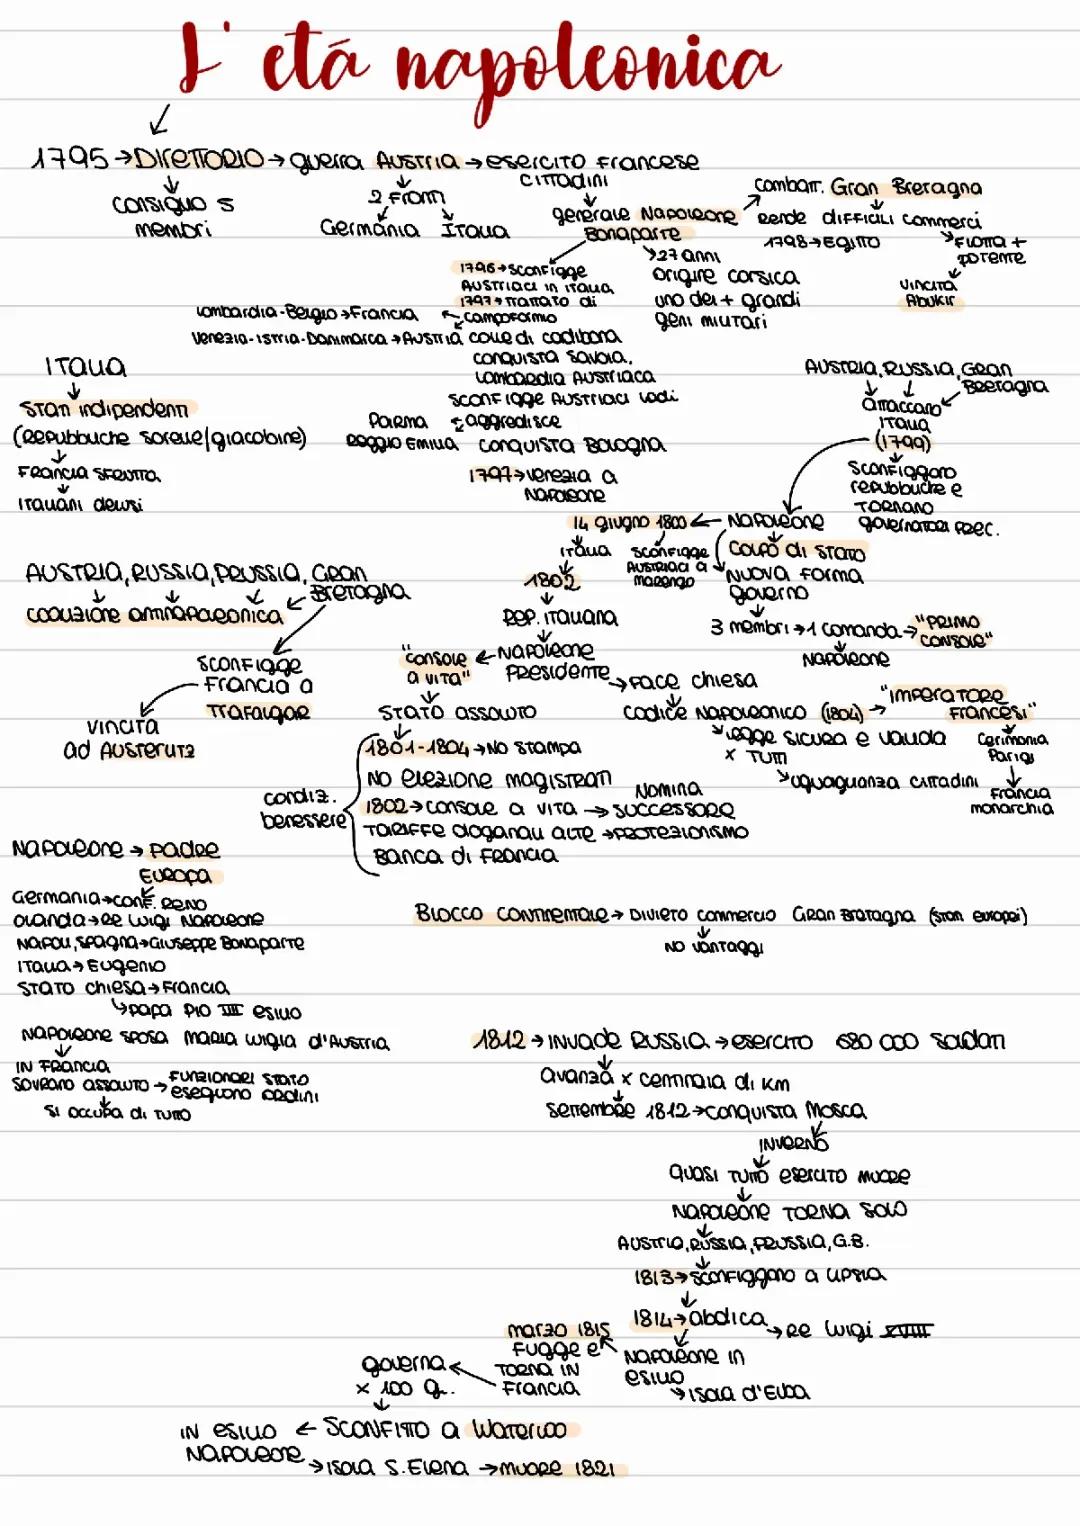 L'etá napoleonica
1795 → DIRETTORIO → guerra AUSTRIA → esercito francese
cittadini
consiglio 5
membri
2 fronti
Germania Italia
generale Napoleone
Bonaparte
combatt. Gran Bretagna
rende difficili commerci
1798 → Egitto
flotta +
potente
vincita
Abukir
27 anni
origine corsica
uno dei + grandi
geni militari
1796 → sconfigge
austriaci in italia
1797 → trattato di
campoformio
Lombardia - Belgio → Francia
Venezia - Istria - Danimarca → Austria
colle di cadibona
conquista savoia,
lombardia austriaca
sconfigge austriaci lodi
Parma
Reggio Emilia
aggredisce
conquista Bologna
1797 → venezia a
Napoleone
ITALIA
stati indipendenti
(repubbliche sorelle/giacobine)
Francia sfrutta
italiani delusi
AUSTRIA, RUSSIA, GRAN
Bretagna
attaccano
Italia
(1799)
sconfiggono
repubbliche e
tornano
governatori prec.
14 giugno 1800 ← Napoleone
Italia
sconfigge
austriaci a
marengo
colpo di stato
nuova forma
governo
3 membri → 1 comanda → "PRIMO
CONSOLE"
Napoleone
1802
REP. ITALIANA
Napoleone
presidente
"console
a vita"
AUSTRIA, RUSSIA, PRUSSIA, GRAN
Bretagna
coalizione antinapoleonica
sconfigge
Francia a
Trafalgar
vincita
ad Austerlitz
Pace chiesa
codice Napoleonico (1804) → "IMPERATORE
FRANCESI"
legge sicura e valida
x tutti
uguaglianza cittadini
cerimonia
Parigi
Francia
monarchia
stato assoluto
condiz.
benessere
1801-1804 → NO stampa
NO elezione magistrati
1802 → console a vita → nomina
successore
tariffe doganali alte → protezionismo
Banca di Francia
Napoleone → padre
Europa
Germania → conf. Reno
olanda → re luigi Napoleone
Napoli, Spagna → Giuseppe Bonaparte
Italia → Eugenio
Stato chiesa → Francia
papa Pio III esilio
Napoleone sposa Maria luigia d'Austria
IN FRANCIA
sovrano assoluto → funzionari stato
eseguono ordini
si occupa di tutto
Blocco continentale → divieto commercio Gran Bretagna (stati europei)
NO vantaggi
1812 → INVADE RUSSIA → esercito 680 000 soldati
avanza x centinaia di km
settembre 1812 → conquista Mosca
INVERNO
quasi tutto esercito muore
Napoleone torna solo
Austria, Russia, Prussia, G.B.
1813 → sconfiggono a Lipsia
1814 → abdica → re luigi XVIII
Napoleone in
esilio
isola d'Elba
marzo 1815
fugge e
torna in
Francia
governa
x 100 g.
SCONFITTO a Waterloo
IN esilio
Napoleone
isola S. Elena → muore 1821